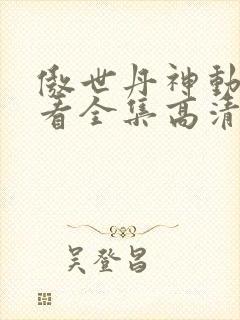 傲世丹神動
看全集高清
吴登昌